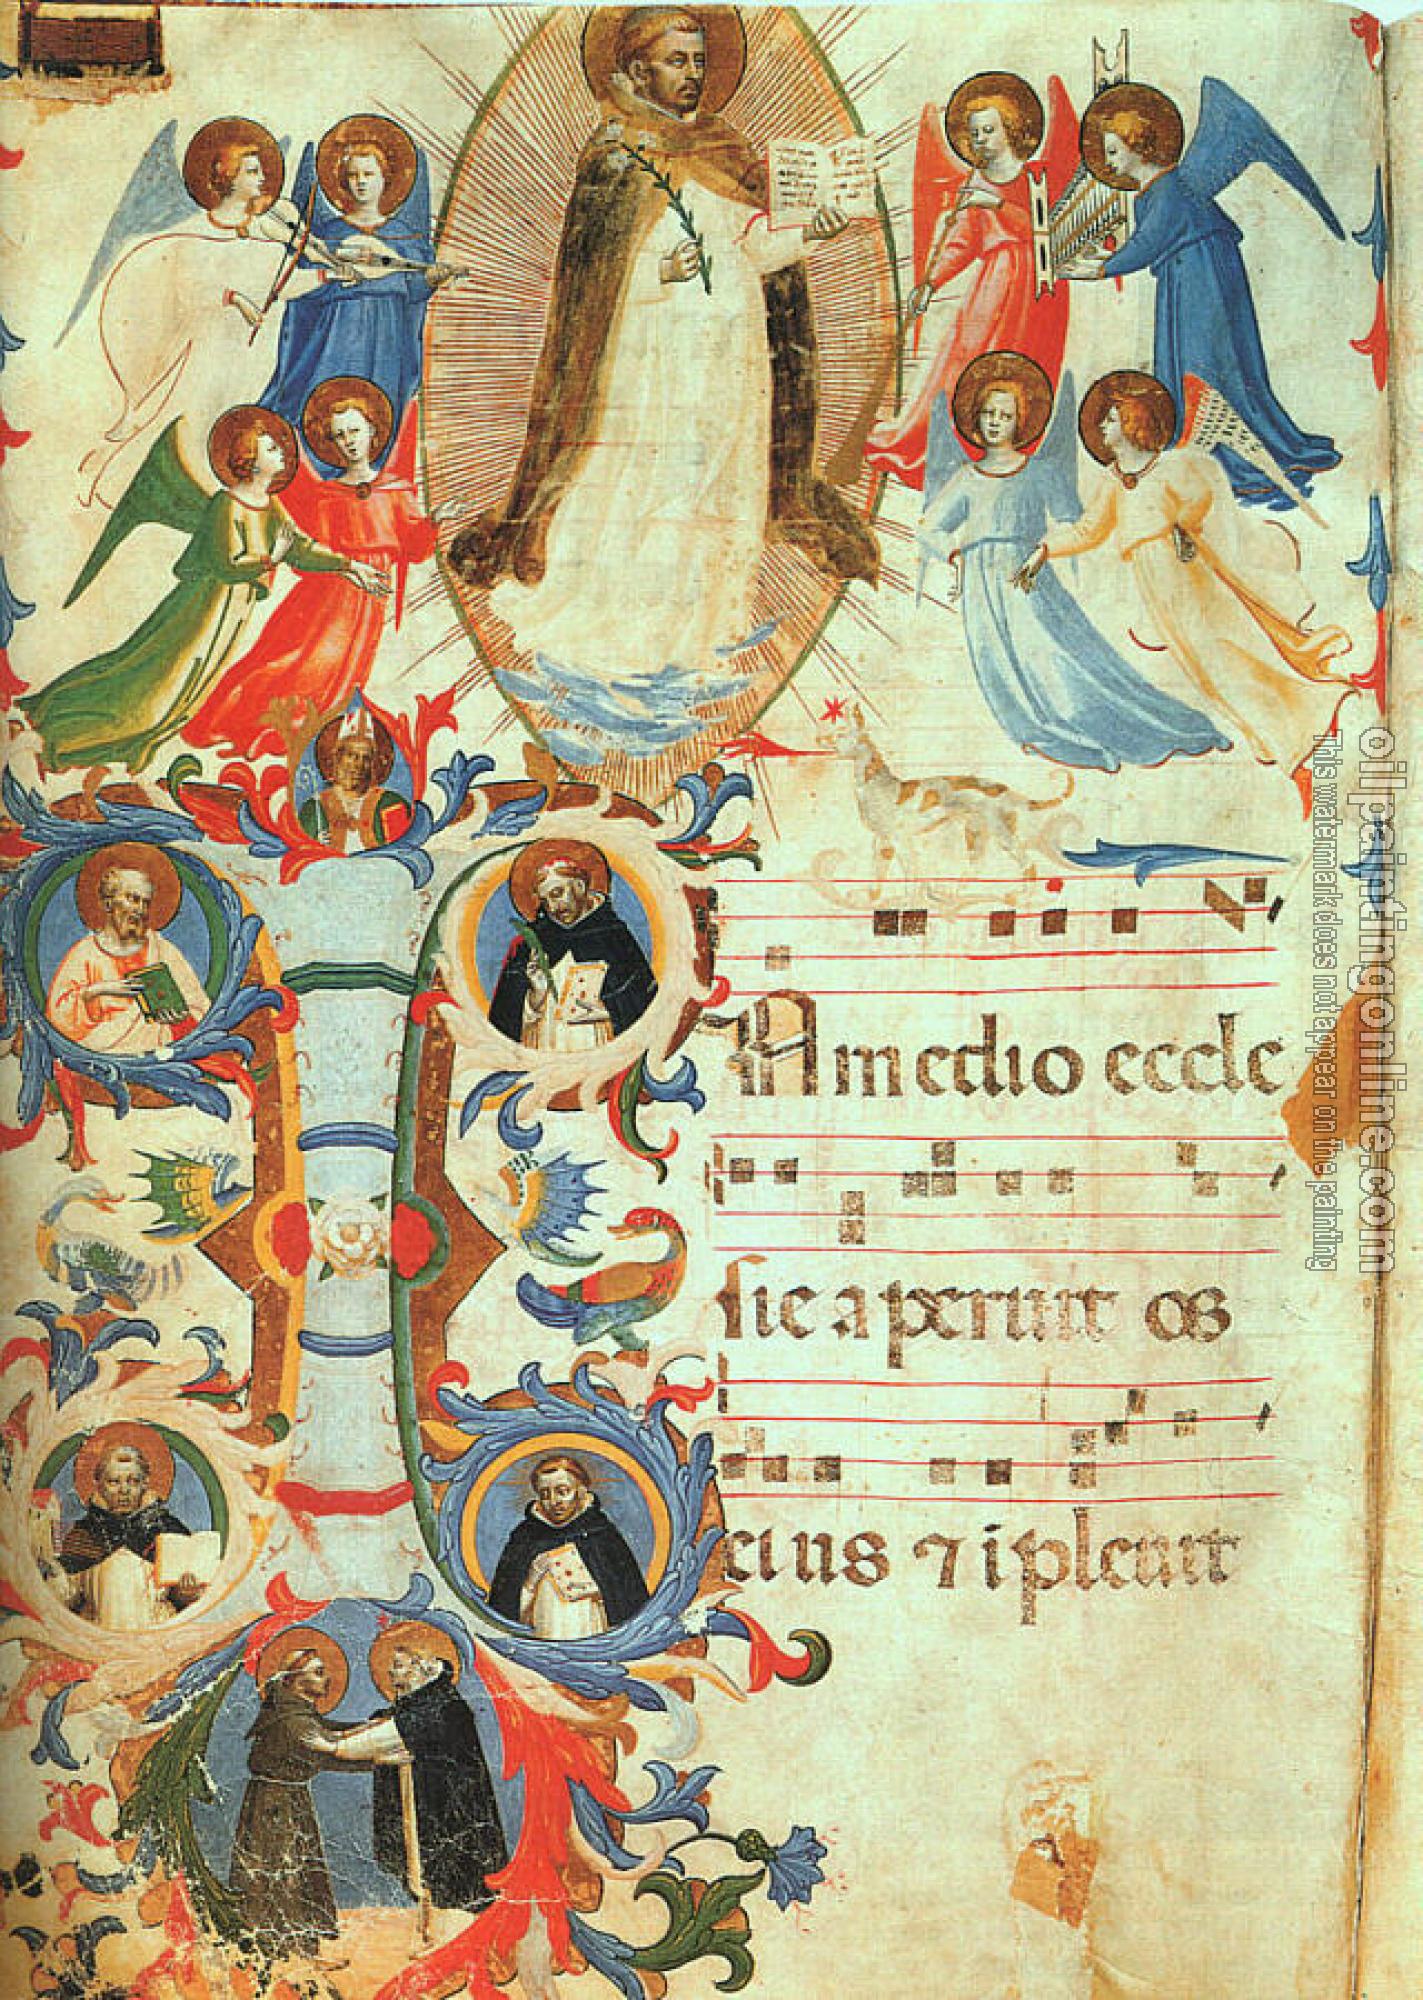 IN medio eccle
sie aperuit os
eius ⁊ ipleuit
oilpaintingonline.com
This watermark does not appear on the painting